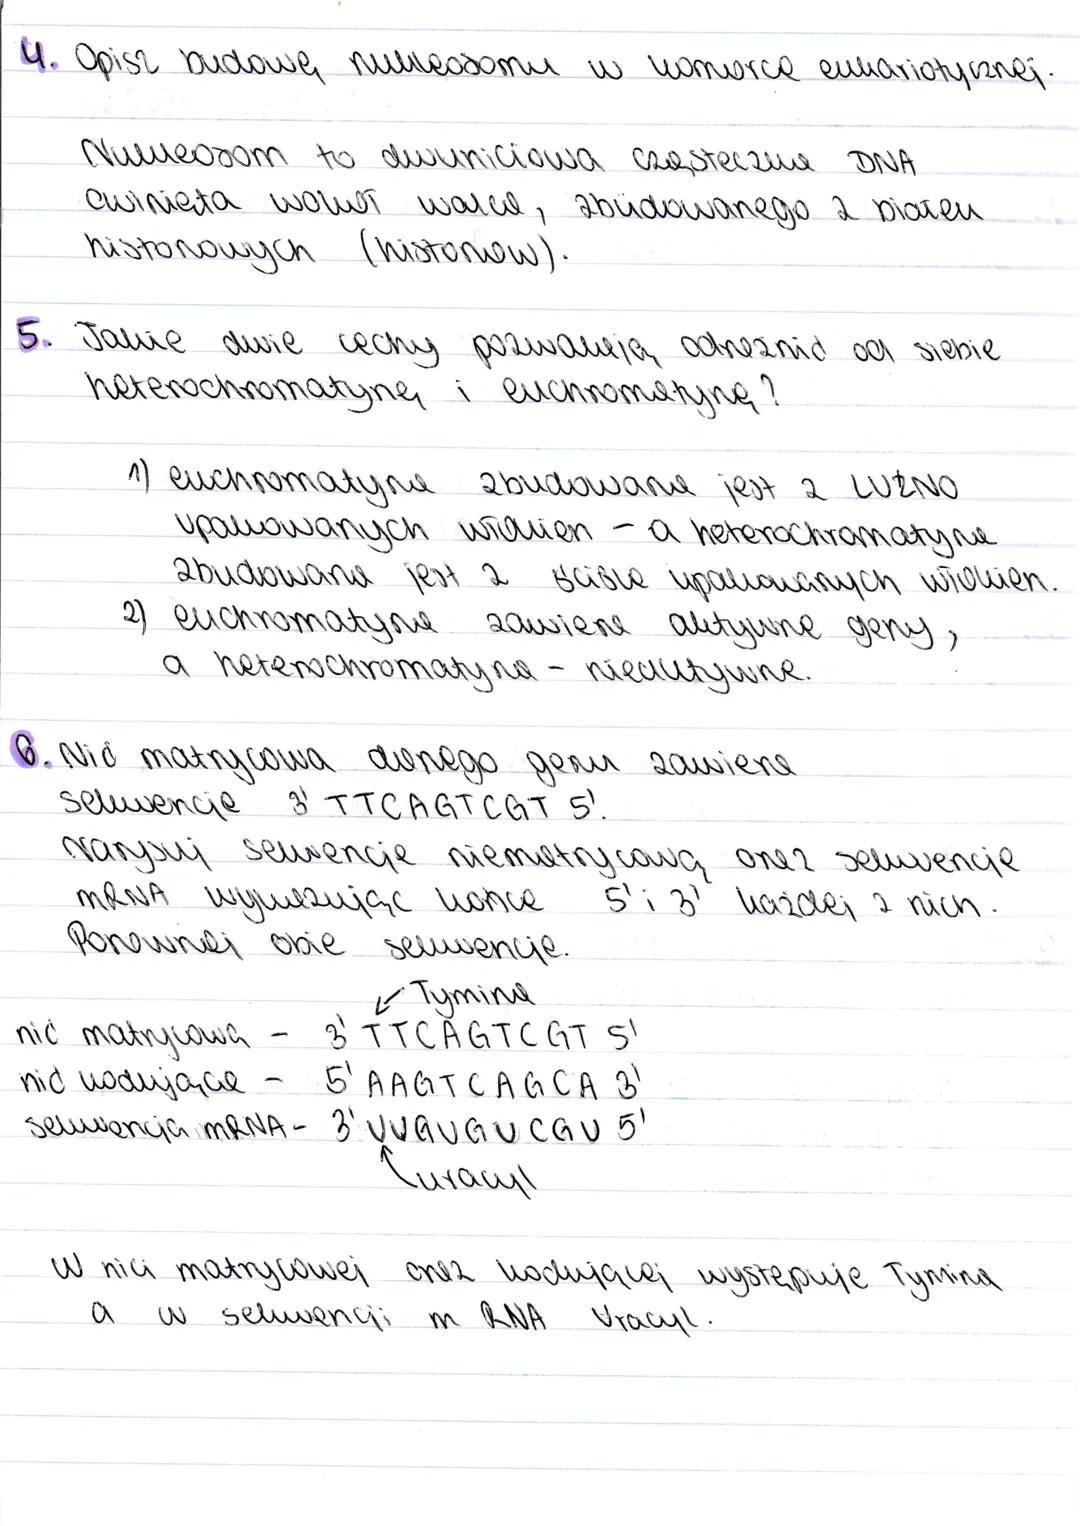 4. Opisz budowę nukleosomu w komórce eukariotycznej.
Nukleosom to dwuniciowa cząsteczka DNA
owinięta wokół walca, zbudowanego z białek
histonowych (histonów).
5. Jakie dwie cechy pozwalają odróżnić od siebie
heterochromatynę i euchromatynę?
1) euchromatyna zbudowana jest z LUŹNO
upakowanych włókien - a heterochromatyna
zbudowana jest z ściśle upakowanych włókien.
2) euchromatyna zawiera aktywne geny,
a heterochromatyna - nieaktywne.
6. Nić matrycowa danego genu zawiera
sekwencję 3' TTCAGTCGT 5'.
Narysuj sekwencję niematrycową oraz sekwencję
mRNA wykazując końce 5' i 3' każdej z nich.
Porównaj obie sekwencje.
↙ Tymina
nić matrycowa - 3' TTCAGTCGT 5'
nić kodująca - 5' AAGTCAGCA 3'
sekwencja mRNA - 3' UUGUGUCGU 5'
uracyl
W nici matrycowej oraz kodującej występuje Tymina
a w sekwencji mRNA Uracyl.